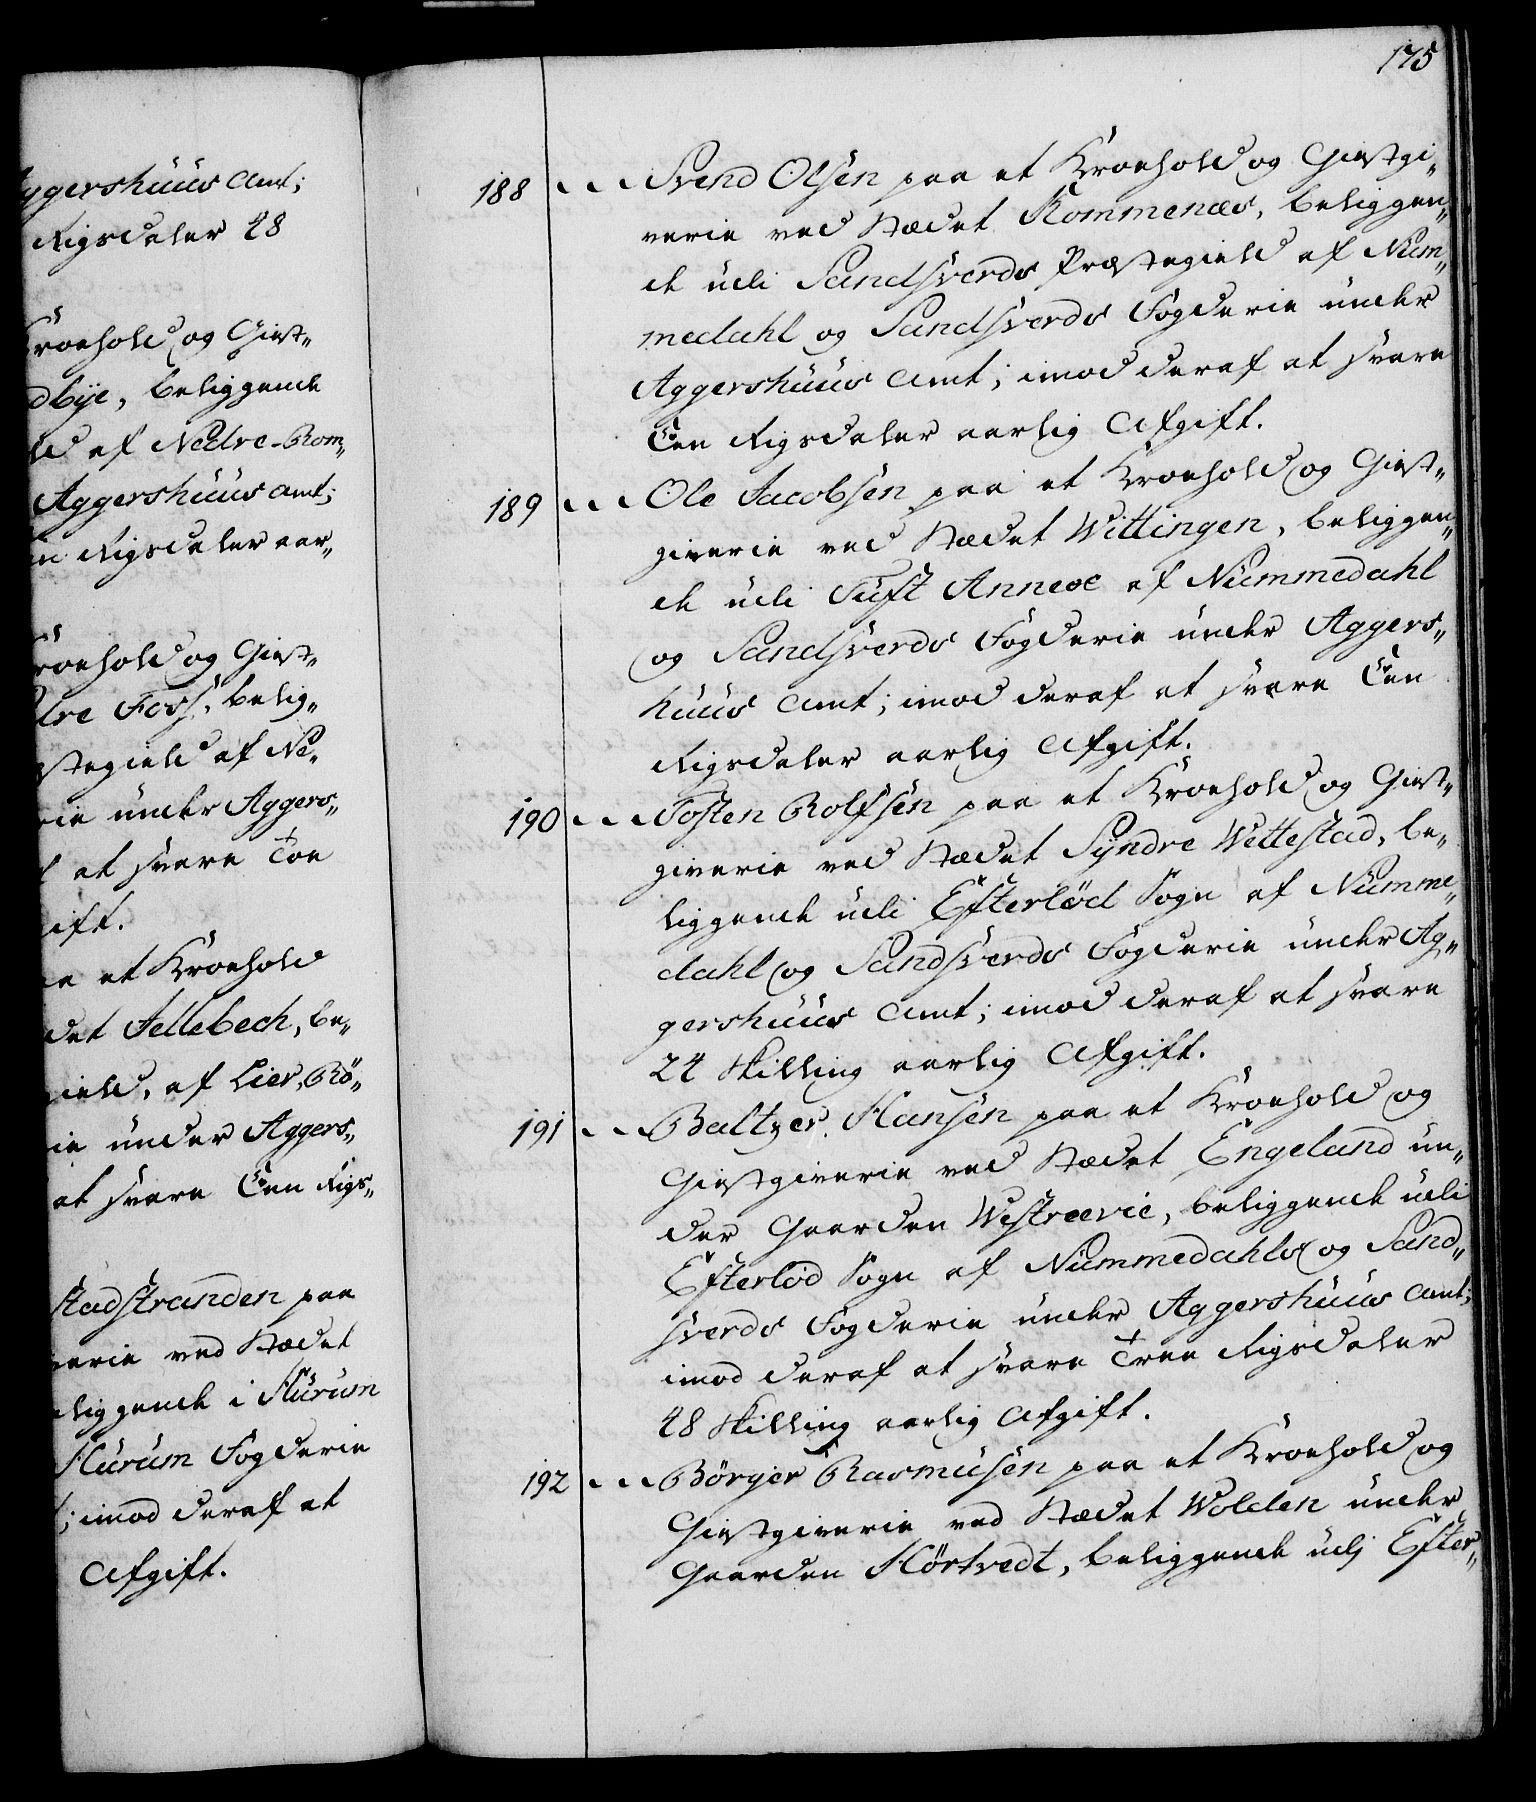 Aggershuus Amt;
Rigsdaler 48
Kroehold og Giest„
dbye, beliggende
ld af Nedre-Rom„
Aggershuus Amt;
en Rigsdaler aar„
Kroehold og Giest„
dre Foss, belig„
stegield af Ne„
rie under Aggers„
f at svare Toe
gift.
aa et Kroehold
det Jellebech, be„
gield, af Lier, Rö„
ie under Aggers„
at svare Een Rigs„
stadstranden paa
verie ved Stædet
eliggende i Hurum
Hurum Fogderie
t; imod deraf at
Afgift.
175
188 Svend Olsen paa et Kroehold og Giestgi„
verie ved Stædet Kommenæs, beliggen„
de udi Sandsverds Præstegield af Num„
medahl og Sandsverds Fogderie under
Aggershuus Amt; imod deraf at svare
Een Rigsdaler aarlig Afgift.
189 Ole Jacobsen paa et Kroehold og Giest„
giverie ved Stædet Wittingen, beliggen„
de udi Tuft Annexe af Nummedahl
og Sandsverds Fogderie under Aggers„
huus Amt; imod deraf at svare Een
Rigsdaler aarlig Afgift.
190 Tosten Rolfsen paa et Kroehold og Giest„
giverie ved Stædet Syndre Wettestad, be„
liggende udi Efterlöd Sogn af Numme„
dahl og Sandsverds Fogderie under Ag„
gershuus Amt; imod deraf at svare
24 Skilling aarlig Afgift.
191 Baltzer Hansen paa et Kroehold og
Giestgiverie ved Stædet Engeland un„
der Gaarden Westreevie, beliggende udi
Efterlöd Sogn af Nummedahls og Sand„
sverds Fogderie under Aggershuus Amt;
imod deraf at svare Tree Rigsdaler
48 Skilling aarlig Afgift.
192 Börger Rasmusen paa et Kroehold og
Giestgiverie ved Stædet Wolden under
Gaarden Hörtvedt, beliggende udj Efter„